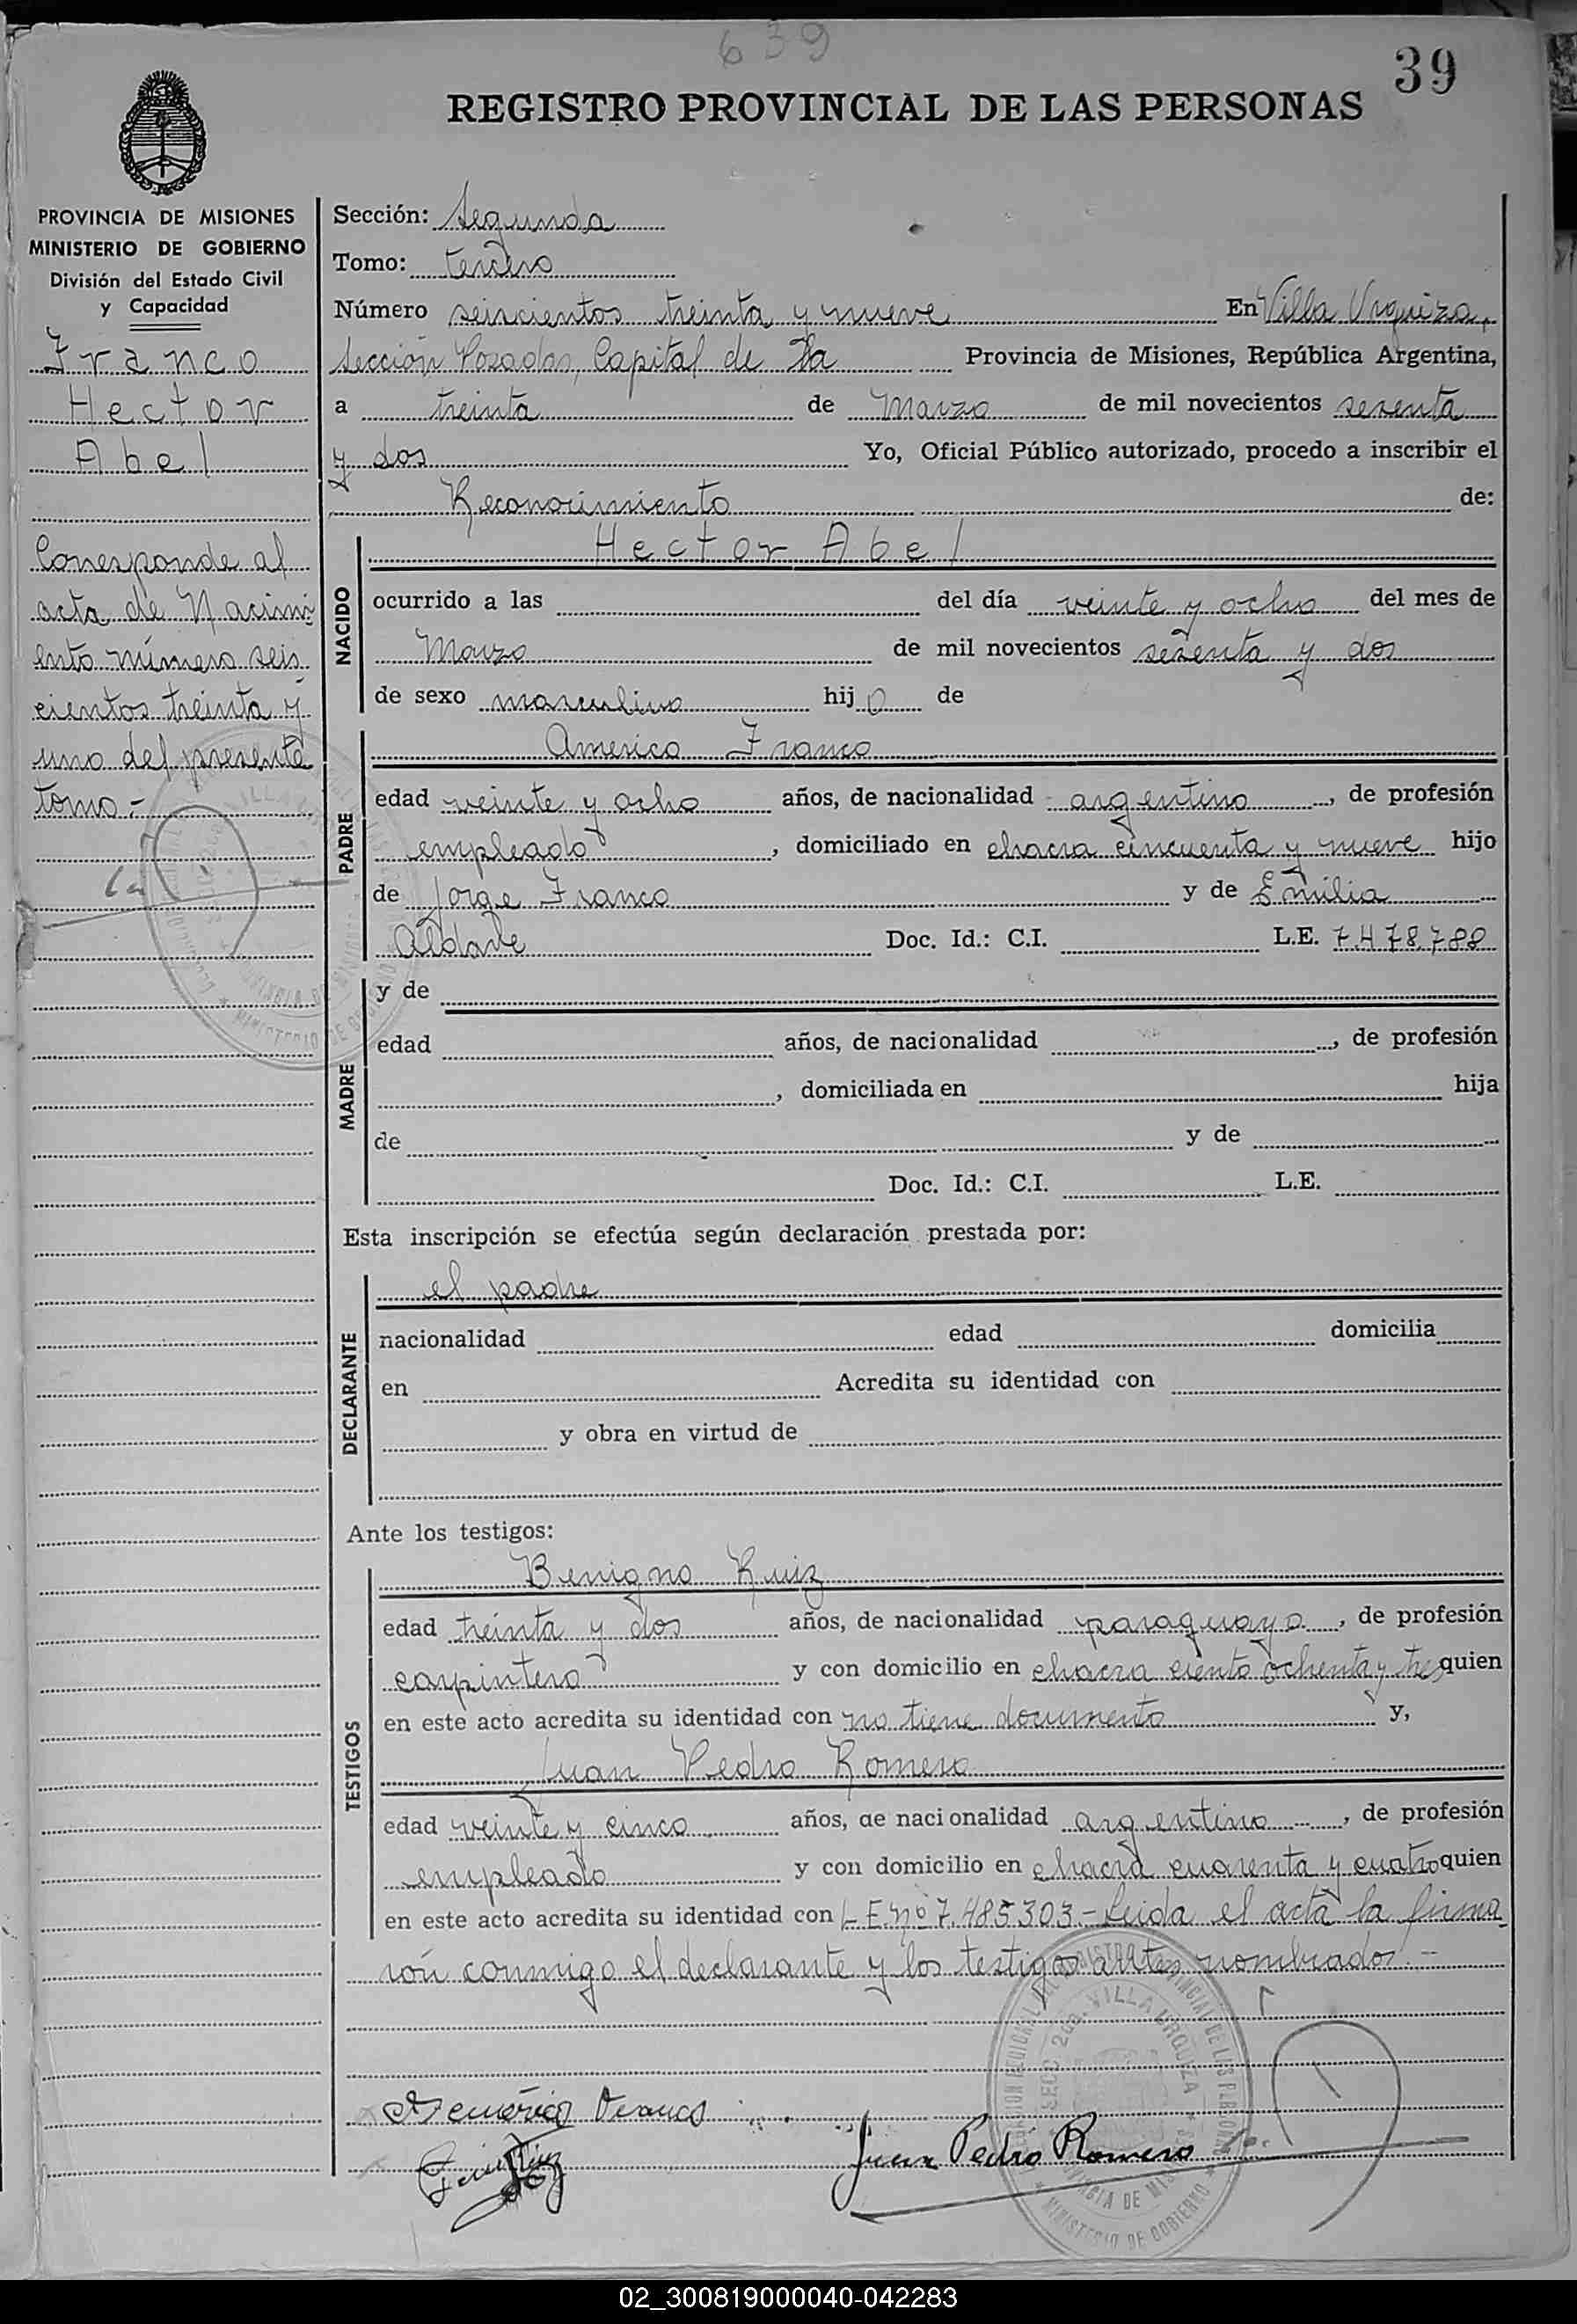 639
39
REGISTRO PROVINCIAL DE LAS PERSONAS
PROVINCIA DE MISIONES
MINISTERIO DE GOBIERNO
División del Estado Civil
y Capacidad
Franco
Hector
Abel
Corresponde al
acta de Nacimi
ento número seis
cientos treinta y
uno del presente
tomo.-
Sección: Segunda
Tomo: tercero
Número seiscientos treinta y nueve En Villa Urquiza,
Sección Posadas, Capital de la Provincia de Misiones, República Argentina,
a treinta de Marzo de mil novecientos sesenta
y dos Yo, Oficial Público autorizado, procedo a inscribir el
Reconocimiento de:
NACIDO
Hector Abel
ocurrido a las del día veinte y ocho del mes de
Marzo de mil novecientos sesenta y dos
de sexo masculino hijo de
PADRE
Americo Franco
edad veinte y ocho años, de nacionalidad argentino, de profesión
empleado, domiciliado en chacra cincuenta y nueve hijo
de Jorge Franco y de Emilia
Doc. Id.: C.I. L.E. 7.478.788
MADRE
y de
edad años, de nacionalidad , de profesión
, domiciliada en hija
de y de
Doc. Id.: C.I. L.E.
Esta inscripción se efectúa según declaración prestada por:
DECLARANTE
el padre
nacionalidad edad domicilia
en Acredita su identidad con
y obra en virtud de
Ante los testigos:
TESTIGOS
Benigno Ruiz
edad treinta y dos años, de nacionalidad paraguayo, de profesión
carpintero y con domicilio en chacra ciento ochenta y tres quien
en este acto acredita su identidad con no tiene documento y,
Juan Pedro Romero
edad veinte y cinco años, de nacionalidad argentino, de profesión
empleado y con domicilio en chacra cuarenta y cuatro quien
en este acto acredita su identidad con L.E. nº 7.485.303-Leida el acta la firma
rón conmigo el declarante y los testigos antes nombrados.-
SECC. 2da. VILLA URQUIZA
PROVINCIA DE MISIONES
MINISTERIO DE GOBIERNO
Americo Franco
Juan Pedro Romero
02_300819000040-042283